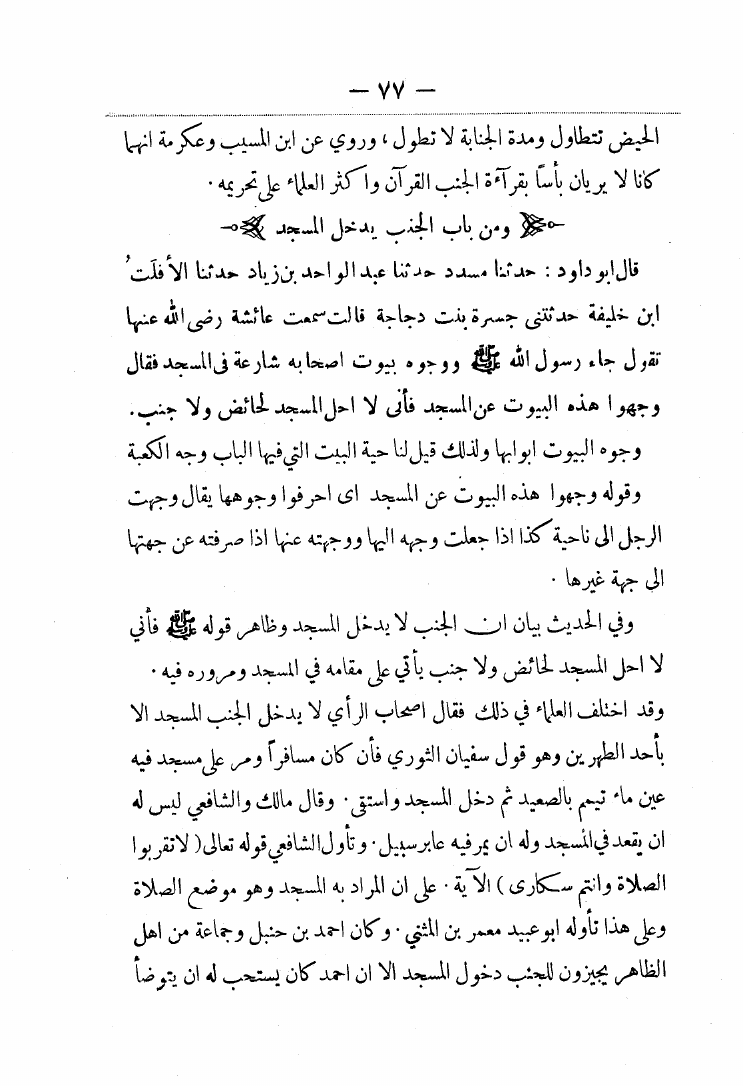 — ٧٧ —
الحيض تتطاول ومدة الجنابة لا تطول، وروي عن ابن المسيب وعكرمة انهما
كانا لا يريان بأسًا بقرآءة الجنب القرآن واكثر العلماء على تحريمه.
ومن باب الجنب يدخل المسجد
قال ابو داود : حدثنا مسدد حدثنا عبد الواحد بن زياد حدثنا الأفلَتُ
ابن خليفة حدثتني جسرة بنت دجاجة قالت سمعت عائشة رضى الله عنها
تقول جاء رسول الله ﷺ ووجوه بيوت اصحابه شارعة فى المسجد فقال
وجهوا هذه البيوت عن المسجد فأنى لا احل المسجد لحائض ولا جنب.
وجوه البيوت ابوابها ولذلك قيل لناحية البيت التي فيها الباب وجه الكعبة
وقوله وجهوا هذه البيوت عن المسجد اى احرفوا وجوهها يقال وجهت
الرجل الى ناحية كذا اذا جعلت وجهه اليها ووجهته عنها اذا صرفته عن جهتها
الى جهة غيرها.
وفي الحديث بيان ان الجنب لا يدخل المسجد وظاهر قوله ﷺ فأني
لا احل المسجد لحائض ولا جنب يأتي على مقامه في المسجد ومروره فيه.
وقد اختلف العلماء في ذلك فقال اصحاب الرأي لا يدخل الجنب المسجد الا
بأحد الطهرين وهو قول سفيان الثوري فأن كان مسافراً ومر على مسجد فيه
عين ماء تيمم بالصعيد ثم دخل المسجد واستقى. وقال مالك والشافعي ليس له
ان يقعد في المسجد وله ان يمر فيه عابر سبيل. وتأول الشافعي قوله تعالى (لا تقربوا
الصلاة وانتم سكارى) الآية. على ان المراد به المسجد وهو موضع الصلاة
وعلى هذا تأوله ابو عبيد معمر بن المثني. وكان احمد بن حنبل وجماعة من اهل
الظاهر يجيزون للجنب دخول المسجد الا ان احمد كان يستحب له ان يتوضأ